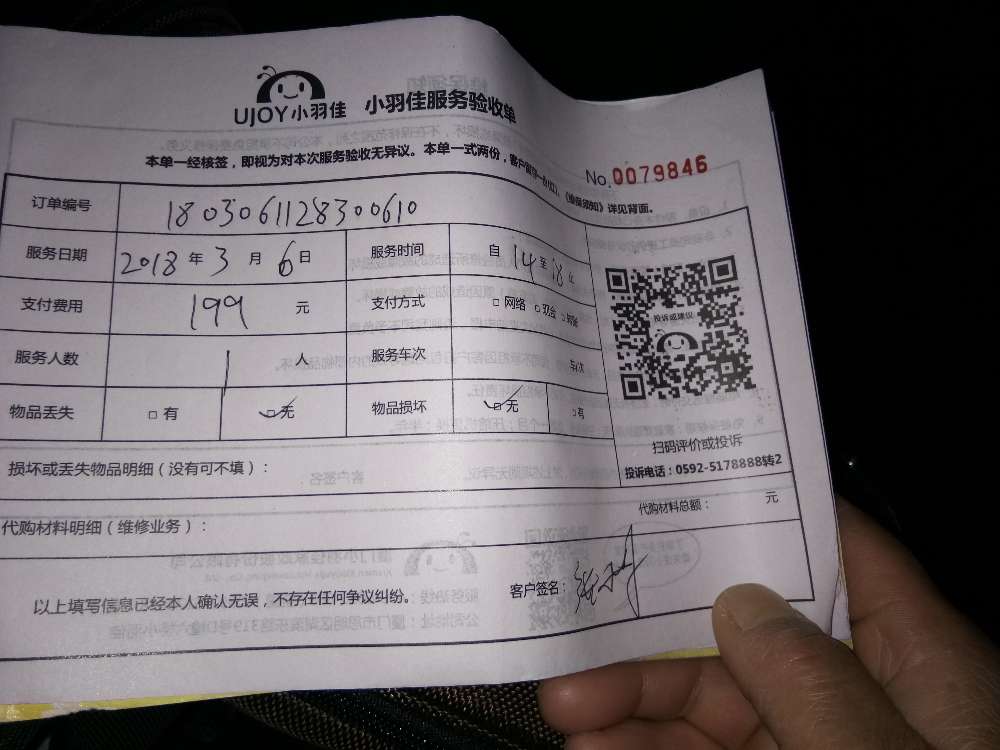 UJOY小羽佳 小羽佳服务验收单
本单一经核签，即视为对本次服务验收无异议。本单一式两份，客户留存一份，《维保须知》详见背面。
No.0079846
订单编号 18030611283006​10
服务日期 2018年3月6日 服务时间 自14至18
支付费用 199元 支付方式 □网络 □现金 □
服务人数 1人 服务车次 车次
物品丢失 □有 ☑无 物品损坏 ☑无 □有
投诉或建议
扫码评价或投诉
投诉电话：0592-5178888转2
损坏或丢失物品明细（没有可不填）：
代购材料明细（维修业务）： 代购材料总额： 元
以上填写信息已经本人确认无误，不存在任何争议纠纷。 客户签名：